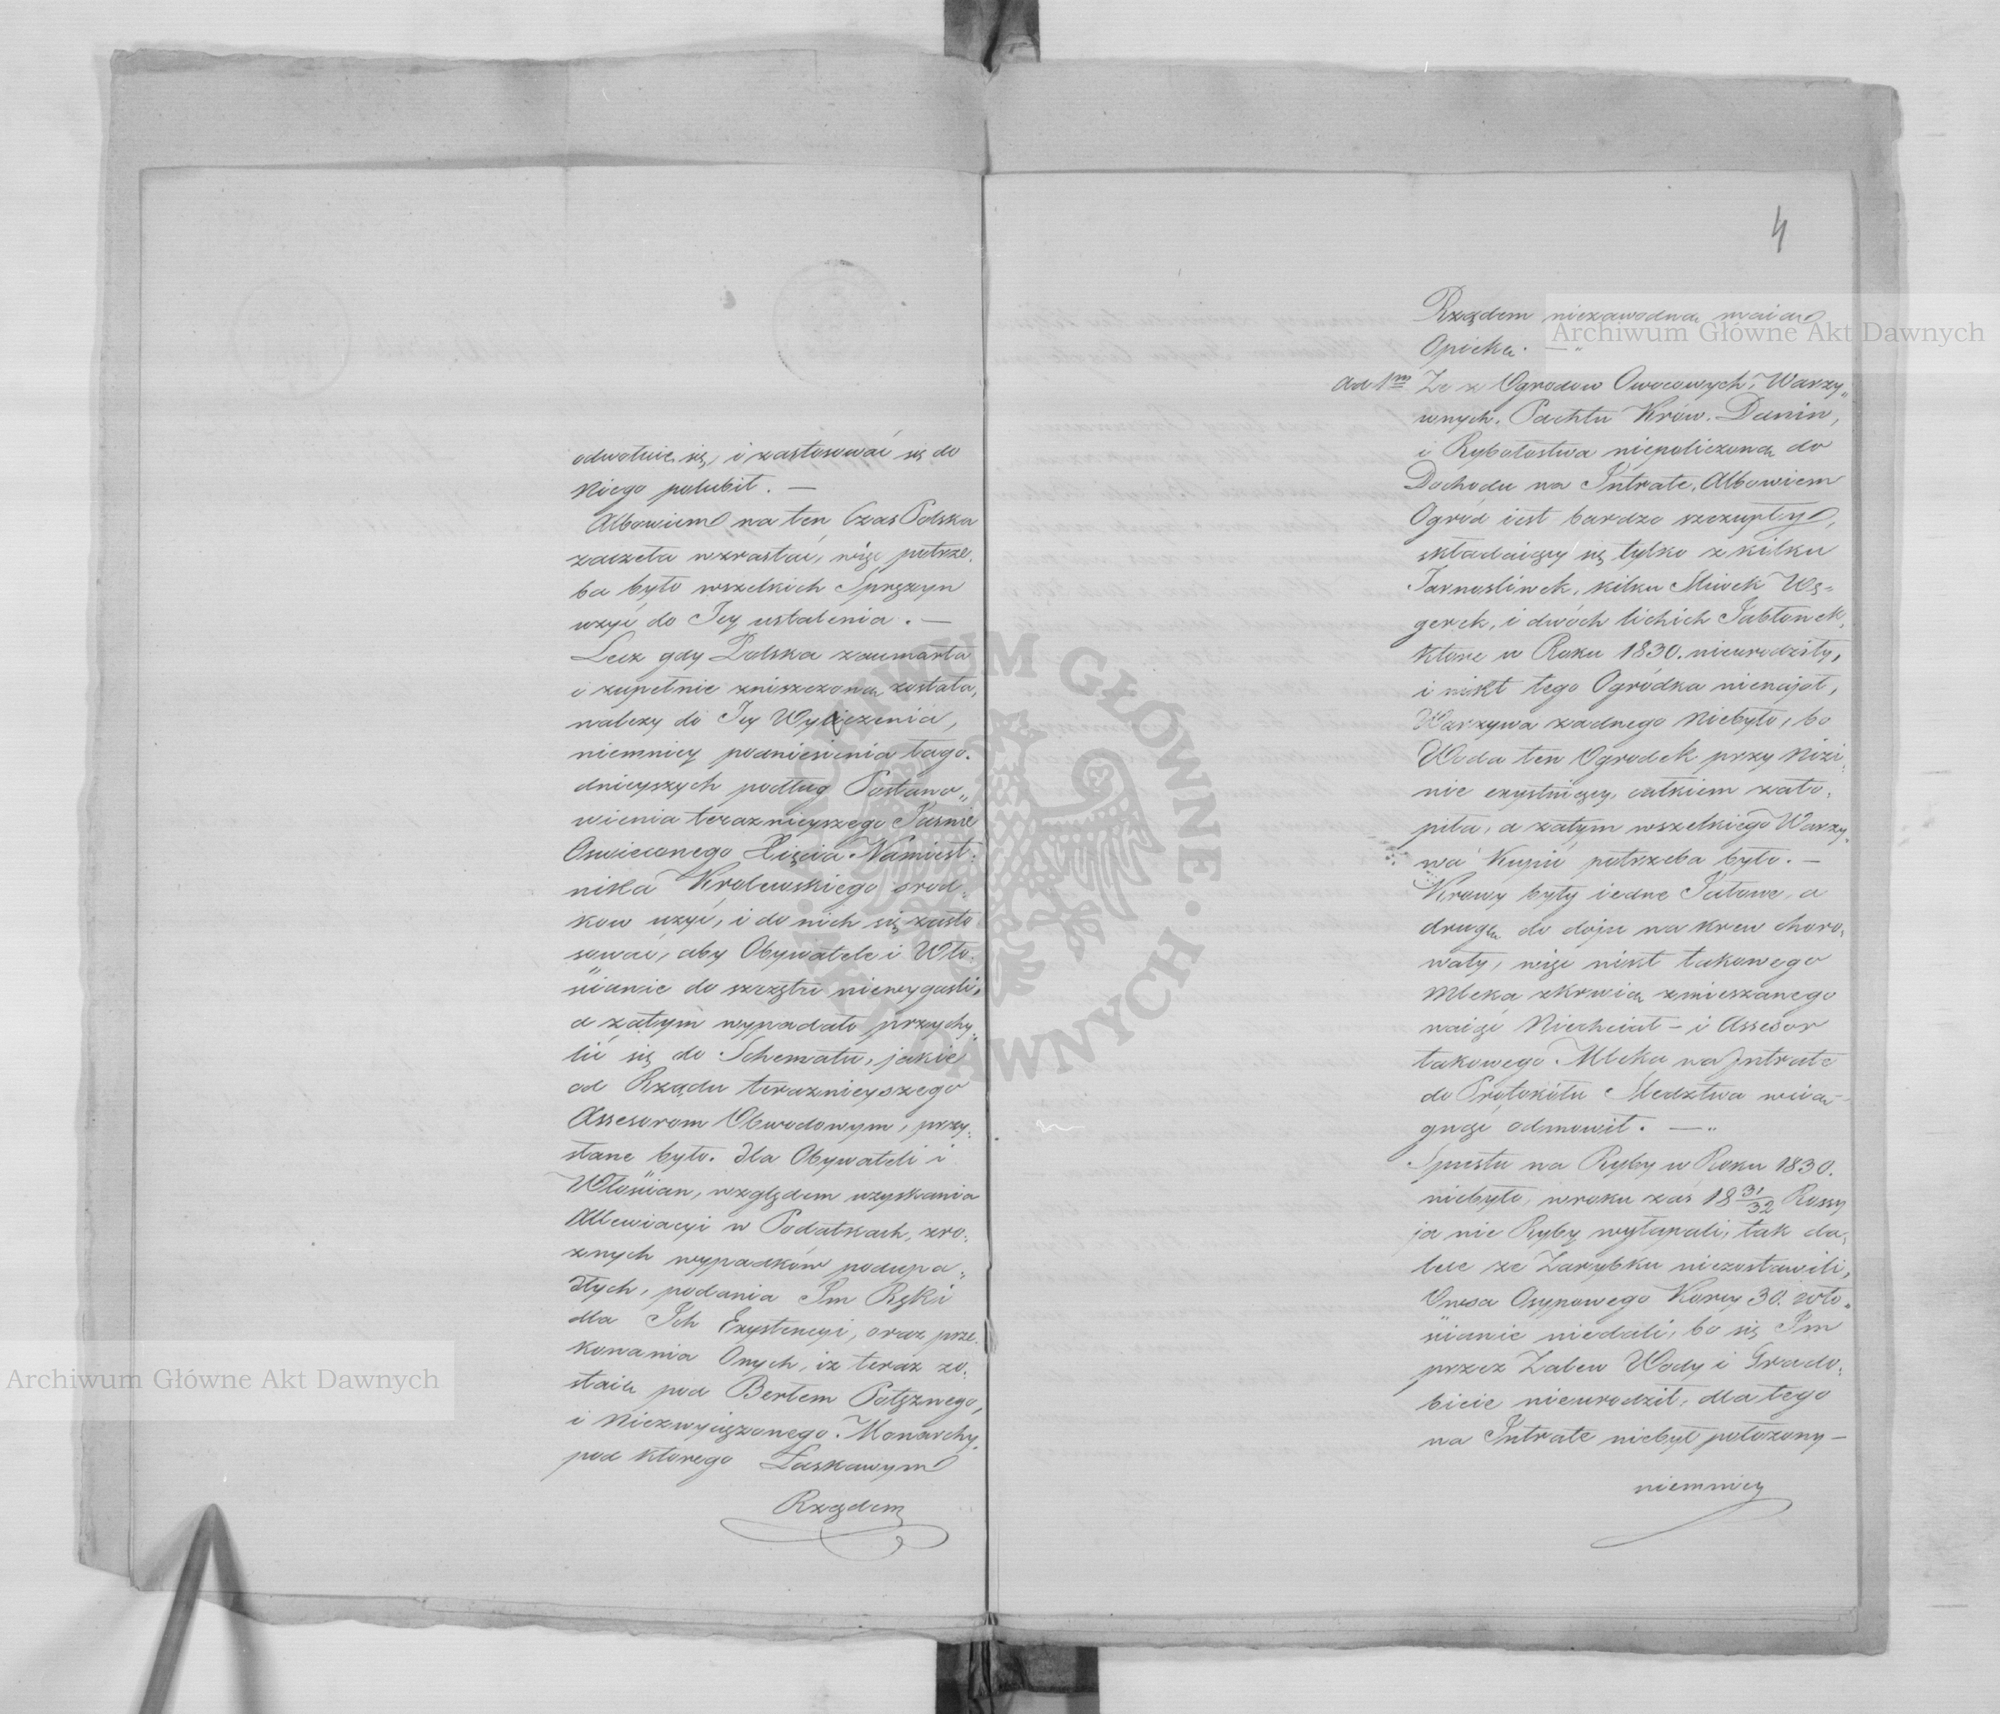 odwołuie się, i zastosować się do
Niego polubił. —
Albowiem na ten Czas Polska
zaczeła wzrastać, więc potrze.
ba było wszelkich Sprężyn
użyć do Iey ustalenia. —
Lecz gdy Polska zaumarła
i zupełnie zniszczona została,
należy do Iey Wyliczenia,
niemniey podniesienia łago.
dnieyszych podług Postano„
wienia teraznieyszego Jaśnie
Oswieconego Xięcia Namiest.
nika Krolewskiego srod„
kow użyć, i do nich się zasto
sować, aby Obywatele i Wło.
ścianie do szczętu niewygaśli,
a zatym wypadało przychy„
lić się do Schematu, jakie
od Rządu teraznieyszego
Assesorom Obwodowym, przy„
słane było. dla Obywateli i
Włościan, względem uzyskania
Allewiacyi w Podatkach, zro„
znych wypadków podupa„
dłych, podania Im Ręki
dla Ich Exystencyi, oraz prze.
konania Onych, iz teraz zo„
staią pod Berłem Potęznego,
i Niezwyciężonego Monarchy,
pod ktorego Łaskawym
Rządem
4
Rządem niezawodną maią
Opiekę. —„
ad 1m Ze z Ogrodow Owocowych, Warzy„
wnych, Pachtu Krów, Danin,
i Rybołostwa niepoliczona do
Dochodu na Intrate, Albowiem
Ogród iest bardzo szczupły,
składaiący się tylko z kilku
Tarnosliwek, kilku Sliwek Wę=
gerek, i dwóch lichich Jabłonek,
które w Roku 1830. nieurodziły,
i nikt tego Ogródka nienajął,
Warzywa zadnego Niebyło, bo
Woda ten Ogrodek przy Nizi„
nie exystuiący, całkiem zato„
piła, a zatym wszelkiego Warzy„
wa Kupić potrzeba było. —
Krowy były iedne Jałowe, a
drugie do doju na krew choro„
wały, więc nikt takowego
Mleka zkrwią zmieszanego
naiąć Niechciał – i Assesor
takowego Mleka na Intrate
do Protokółu Sledztwa wcią„
gnąć odmowił. —„
Spustu na Ryby w Roku 1830.
niebyło, wroku zaś 18 31/32 Rossy
ja nie Ryby wyłapali, tak da„
lece ze Zarybku niezostawili,
Owsa Osypowego Korcy 30. wło„
ścianie niedali, bo się Im
przez Zalew Wody i Grado„
bicie nieurodził, dla tego
na Intrate niebył połozony —
niemniey
Archiwum Główne Akt Dawnych
Archiwum Główne Akt Dawnych
ARCHIWUM GŁÓWNE · AKT DAWNYCH ·